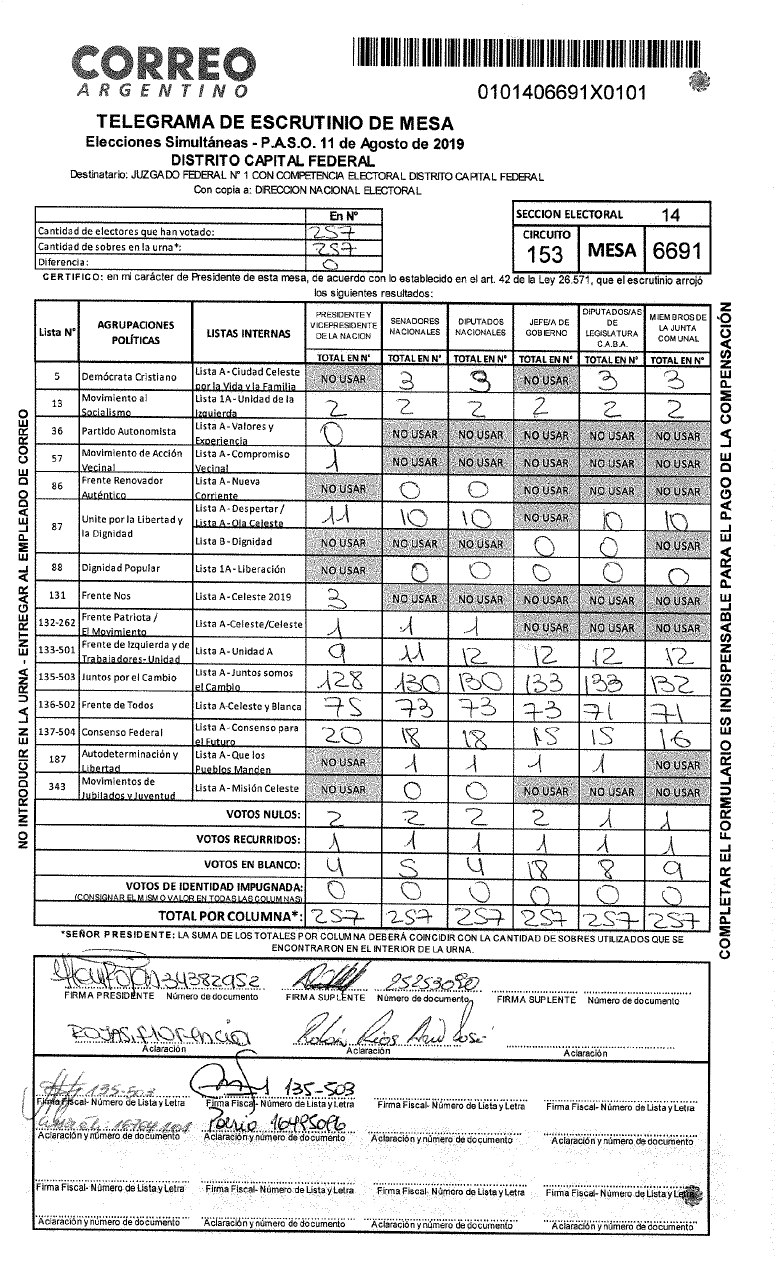 CORREO
ARGENTINO
0101406691X0101
TELEGRAMA DE ESCRUTINIO DE MESA
Elecciones Simultáneas - P.A.S.O. 11 de Agosto de 2019
DISTRITO CAPITAL FEDERAL
Destinatario: JUZGADO FEDERAL N° 1 CON COMPETENCIA ELECTORAL DISTRITO CAPITAL FEDERAL
Con copia a: DIRECCION NACIONAL ELECTORAL
En N°
Cantidad de electores que han votado: 257
Cantidad de sobres en la urna*: 257
Diferencia: 0
SECCION ELECTORAL 14
CIRCUITO 153 MESA 6691
CERTIFICO: en mi carácter de Presidente de esta mesa, de acuerdo con lo establecido en el art. 42 de la Ley 26.571, que el escrutinio arrojó
los siguientes resultados:
Lista N° AGRUPACIONES POLÍTICAS LISTAS INTERNAS PRESIDENTE Y VICEPRESIDENTE DE LA NACION SENADORES NACIONALES DIPUTADOS NACIONALES JEFE/A DE GOBIERNO DIPUTADOS/AS DE LEGISLATURA C.A.B.A. MIEMBROS DE LA JUNTA COMUNAL
TOTAL EN N° TOTAL EN N° TOTAL EN N° TOTAL EN N° TOTAL EN N° TOTAL EN N°
5 Demócrata Cristiano Lista A - Ciudad Celeste por la Vida y la Familia NO USAR 3 3 NO USAR 3 3
13 Movimiento al Socialismo Lista 1A - Unidad de la Izquierda 2 2 2 2 2 2
36 Partido Autonomista Lista A - Valores y Experiencia 0 NO USAR NO USAR NO USAR NO USAR NO USAR
57 Movimiento de Acción Vecinal Lista A - Compromiso Vecinal 1 NO USAR NO USAR NO USAR NO USAR NO USAR
86 Frente Renovador Auténtico Lista A - Nueva Corriente NO USAR 0 0 NO USAR NO USAR NO USAR
87 Unite por la Libertad y la Dignidad Lista A - Despertar / Lista A - Ola Celeste 11 10 10 NO USAR 10 10
Lista B - Dignidad NO USAR NO USAR NO USAR 0 0 NO USAR
88 Dignidad Popular Lista 1A - Liberación NO USAR 0 0 0 0 0
131 Frente Nos Lista A - Celeste 2019 3 NO USAR NO USAR NO USAR NO USAR NO USAR
132-262 Frente Patriota / El Movimiento Lista A - Celeste/Celeste 1 1 1 NO USAR NO USAR NO USAR
133-501 Frente de Izquierda y de Trabajadores- Unidad Lista A - Unidad A 9 11 12 12 12 12
135-503 Juntos por el Cambio Lista A - Juntos somos el Cambio 128 130 130 133 133 132
136-502 Frente de Todos Lista A-Celeste y Blanca 75 73 73 73 71 71
137-504 Consenso Federal Lista A - Consenso para el Futuro 20 18 18 15 15 16
187 Autodeterminación y Libertad Lista A - Que los Pueblos Manden NO USAR 1 1 1 1 NO USAR
343 Movimientos de Jubilados y Juventud Lista A - Misión Celeste NO USAR 0 0 NO USAR NO USAR NO USAR
VOTOS NULOS: 2 2 2 2 1 1
VOTOS RECURRIDOS: 1 1 1 1 1 1
VOTOS EN BLANCO: 4 5 4 18 8 9
VOTOS DE IDENTIDAD IMPUGNADA: 0 0 0 0 0 0
(CONSIGNAR EL MISMO VALOR EN TODAS LAS COLUMNAS)
TOTAL POR COLUMNA*: 257 257 257 257 257 257
*SEÑOR PRESIDENTE: LA SUMA DE LOS TOTALES POR COLUMNA DEBERÁ COINCIDIR CON LA CANTIDAD DE SOBRES UTILIZADOS QUE SE
ENCONTRARON EN EL INTERIOR DE LA URNA.
34382952 25253090
FIRMA PRESIDENTE Número de documento FIRMA SUPLENTE Número de documento FIRMA SUPLENTE Número de documento
ROJAS, Florencia Rolón Ríos Ariel José
Aclaración Aclaración Aclaración
135-503 135-503
Firma Fiscal- Número de Lista y Letra Firma Fiscal- Número de Lista y Letra Firma Fiscal- Número de Lista y Letra Firma Fiscal- Número de Lista y Letra
16495096
Aclaración y número de documento Aclaración y número de documento Aclaración y número de documento Aclaración y número de documento
Firma Fiscal- Número de Lista y Letra Firma Fiscal- Número de Lista y Letra Firma Fiscal- Número de Lista y Letra Firma Fiscal- Número de Lista y Letra
Aclaración y número de documento Aclaración y número de documento Aclaración y número de documento Aclaración y número de documento
NO INTRODUCIR EN LA URNA - ENTREGAR AL EMPLEADO DE CORREO
COMPLETAR EL FORMULARIO ES INDISPENSABLE PARA EL PAGO DE LA COMPENSACIÓN